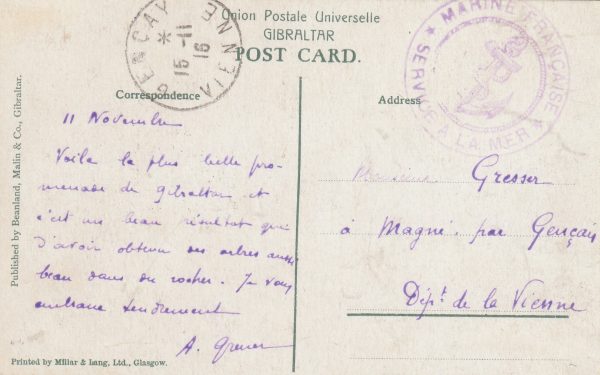 Union Postale Universelle
GIBRALTAR
POST CARD.
GENÇAY
15 -11
16
VIENNE
MARINE FRANÇAISE
SERVICE A LA MER
Correspondence
Address
Published by Beanland, Malin & Co., Gibraltar.
11 Novembre
Voilà la plus belle pro-
menade de Gibraltar et
c'est un beau résultat que
d'avoir obtenu des arbres aussi
beau dans du rocher. Je vous
embrasse tendrement
A.
Monsieur Gresser
à Magné par Gençais
Dépt. de la Vienne
Printed by Millar & Lang, Ltd., Glasgow.